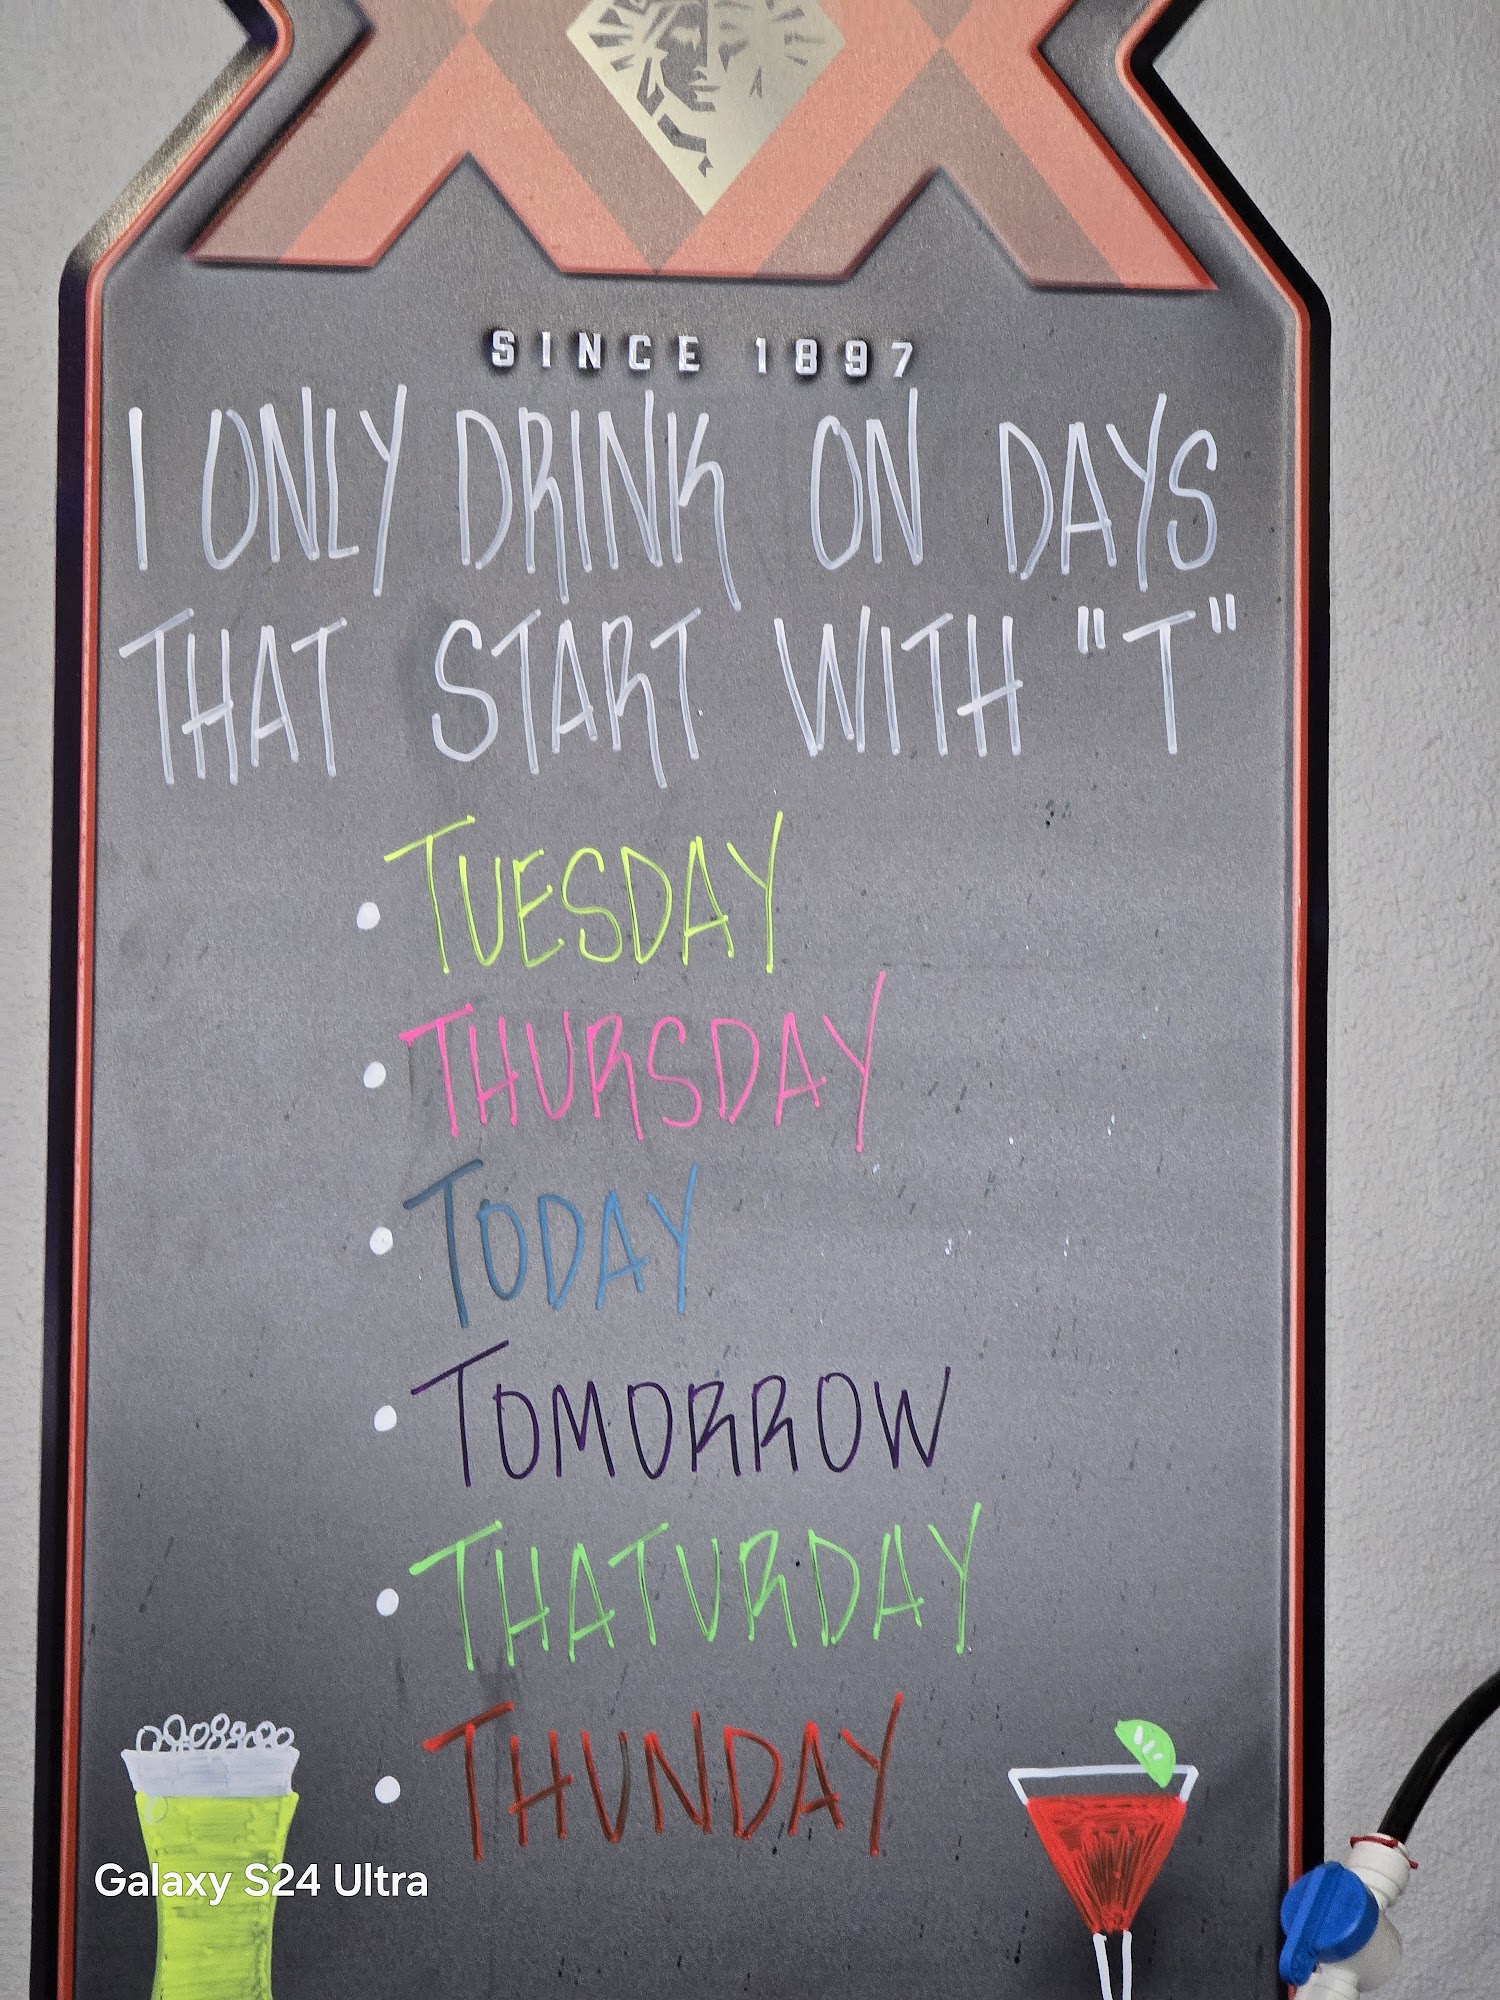 XX
SINCE 1897
I ONLY DRINK ON DAYS
THAT START WITH "T"
• TUESDAY
• THURSDAY
• TODAY
• TOMORROW
• THATURDAY
• THUNDAY
Galaxy S24 Ultra